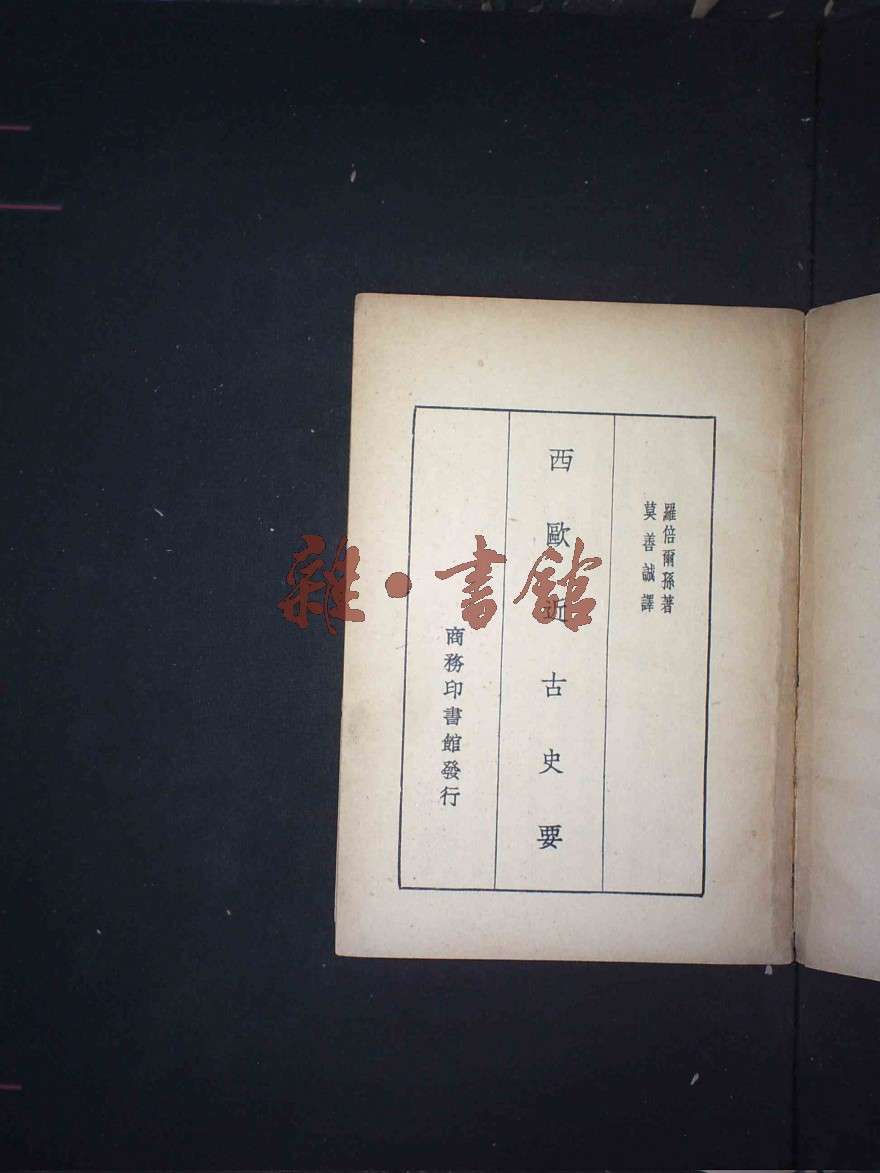 羅倍爾孫著
莫善誠譯
西歐近古史要
商務印書館發行
雜·書館